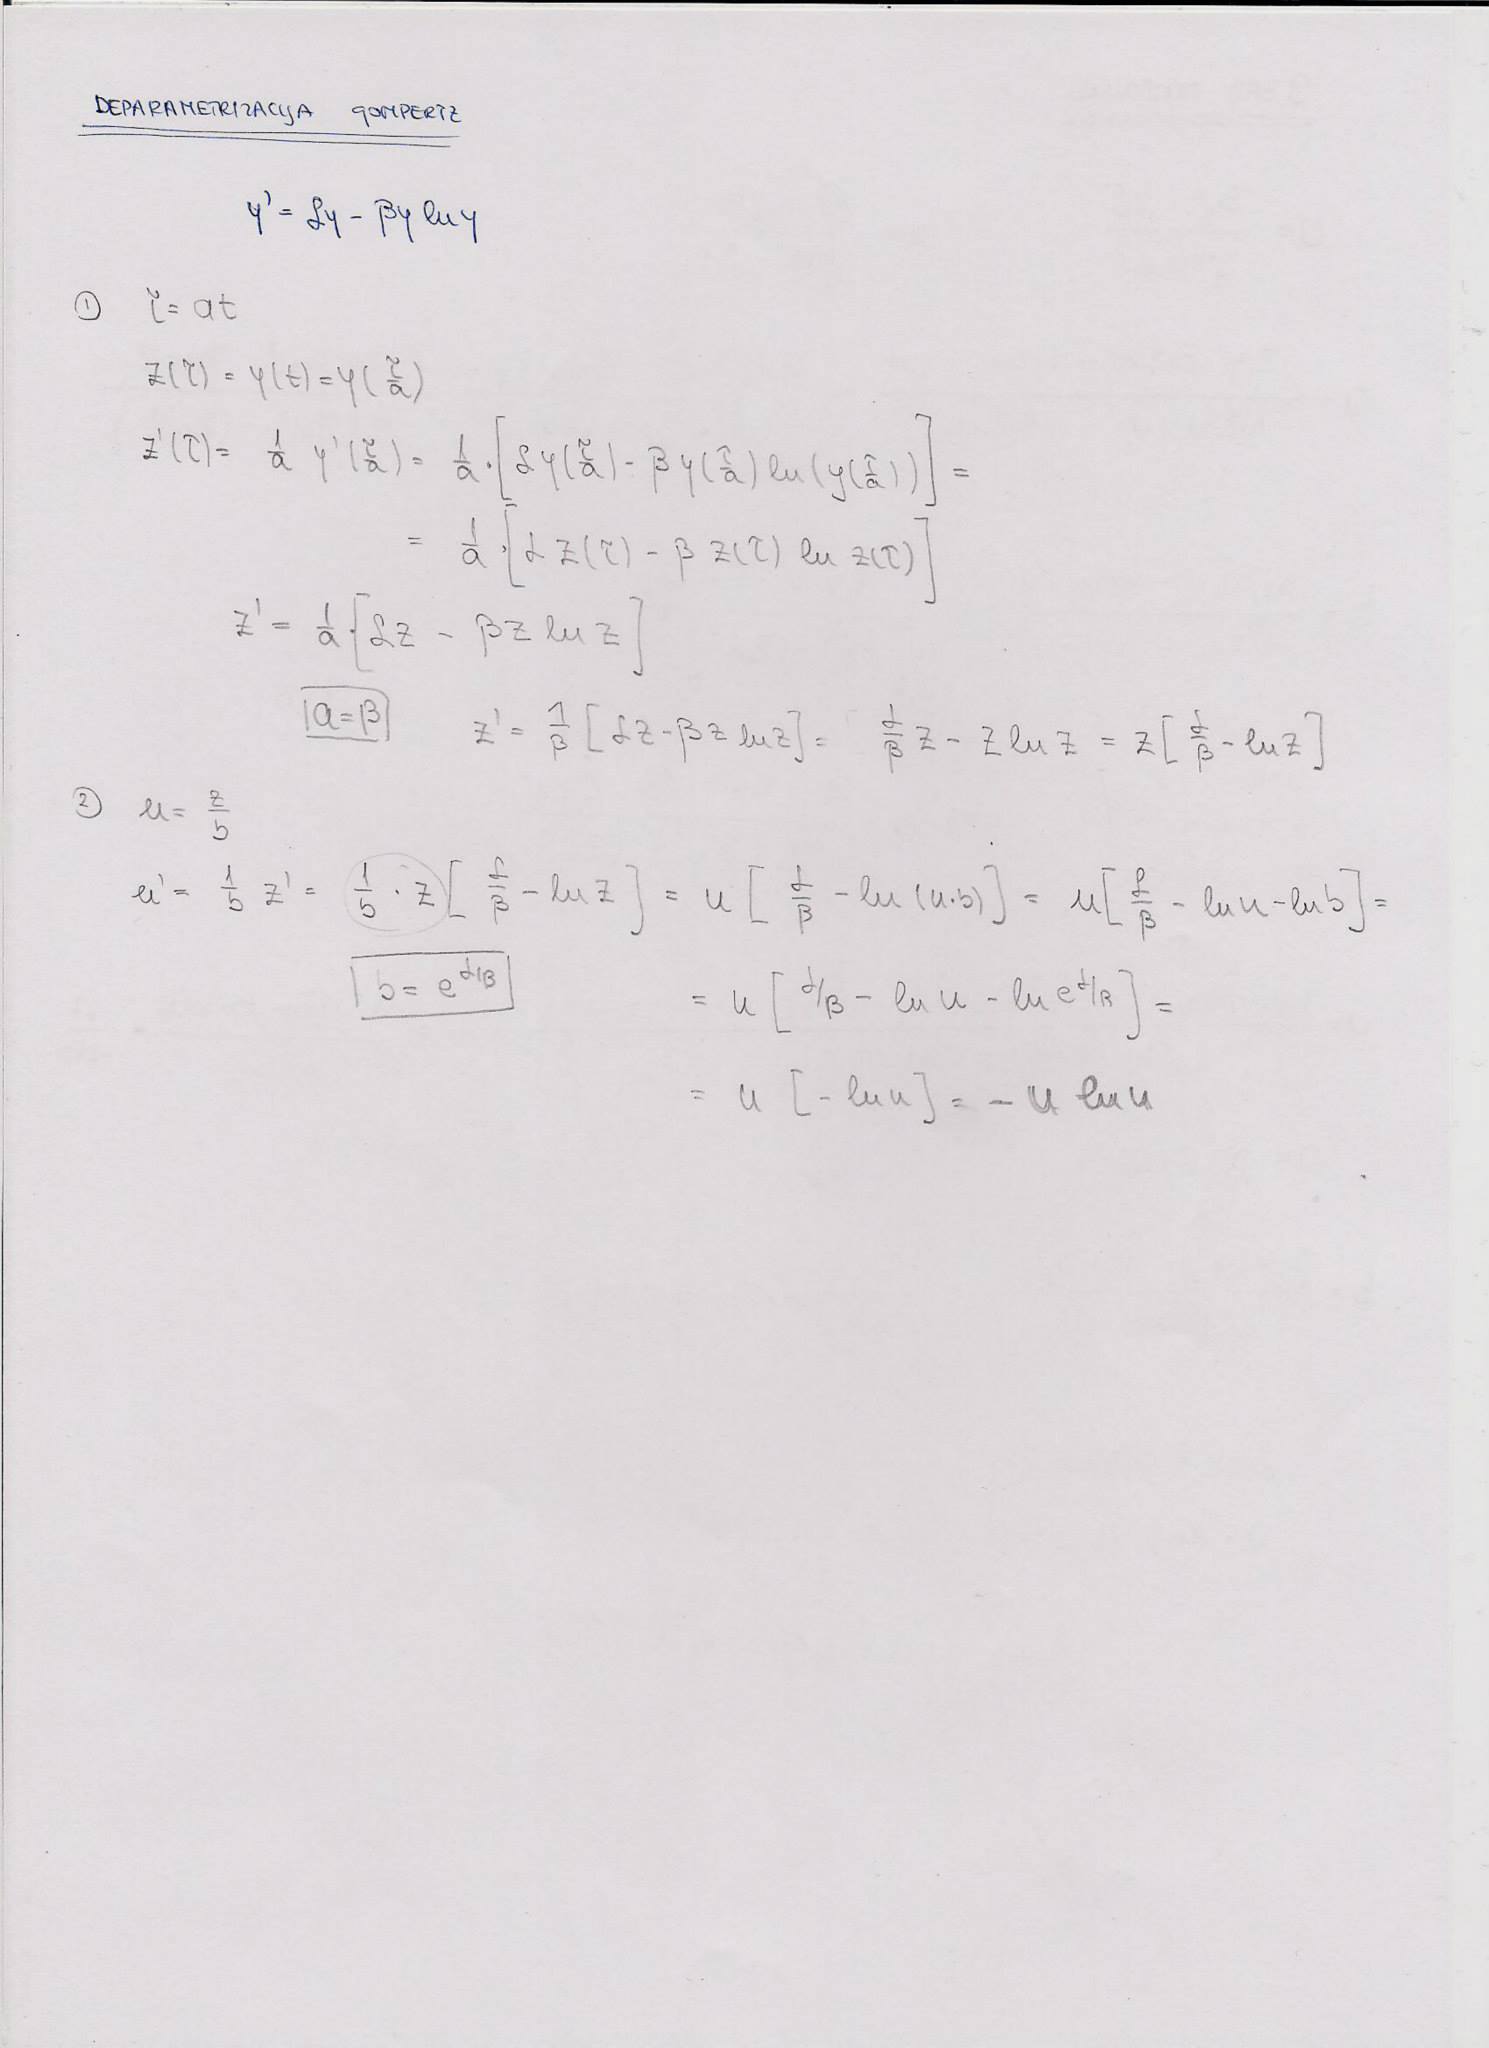 DEPARAMETRIZACIJA GOMPERTZ
y' = αy - βy ln y
① τ = at
z(τ) = y(t) = y(τ/a)
z'(τ) = 1/a y'(τ/a) = 1/a · [αy(τ/a) - βy(τ/a) ln(y(τ/a))] =
= 1/a · [α z(τ) - β z(τ) ln z(τ)]
z' = 1/a · [αz - βz ln z]
a = β z' = 1/β [αz - βz ln z] = α/β z - z ln z = z[α/β - ln z]
② u = z/b
u' = 1/b z' = 1/b · z [α/β - ln z] = u [α/β - ln(u·b)] = u[α/β - ln u - ln b] =
b = e^α/β = u [α/β - ln u - ln e^α/β] =
= u [- ln u] = - u ln u